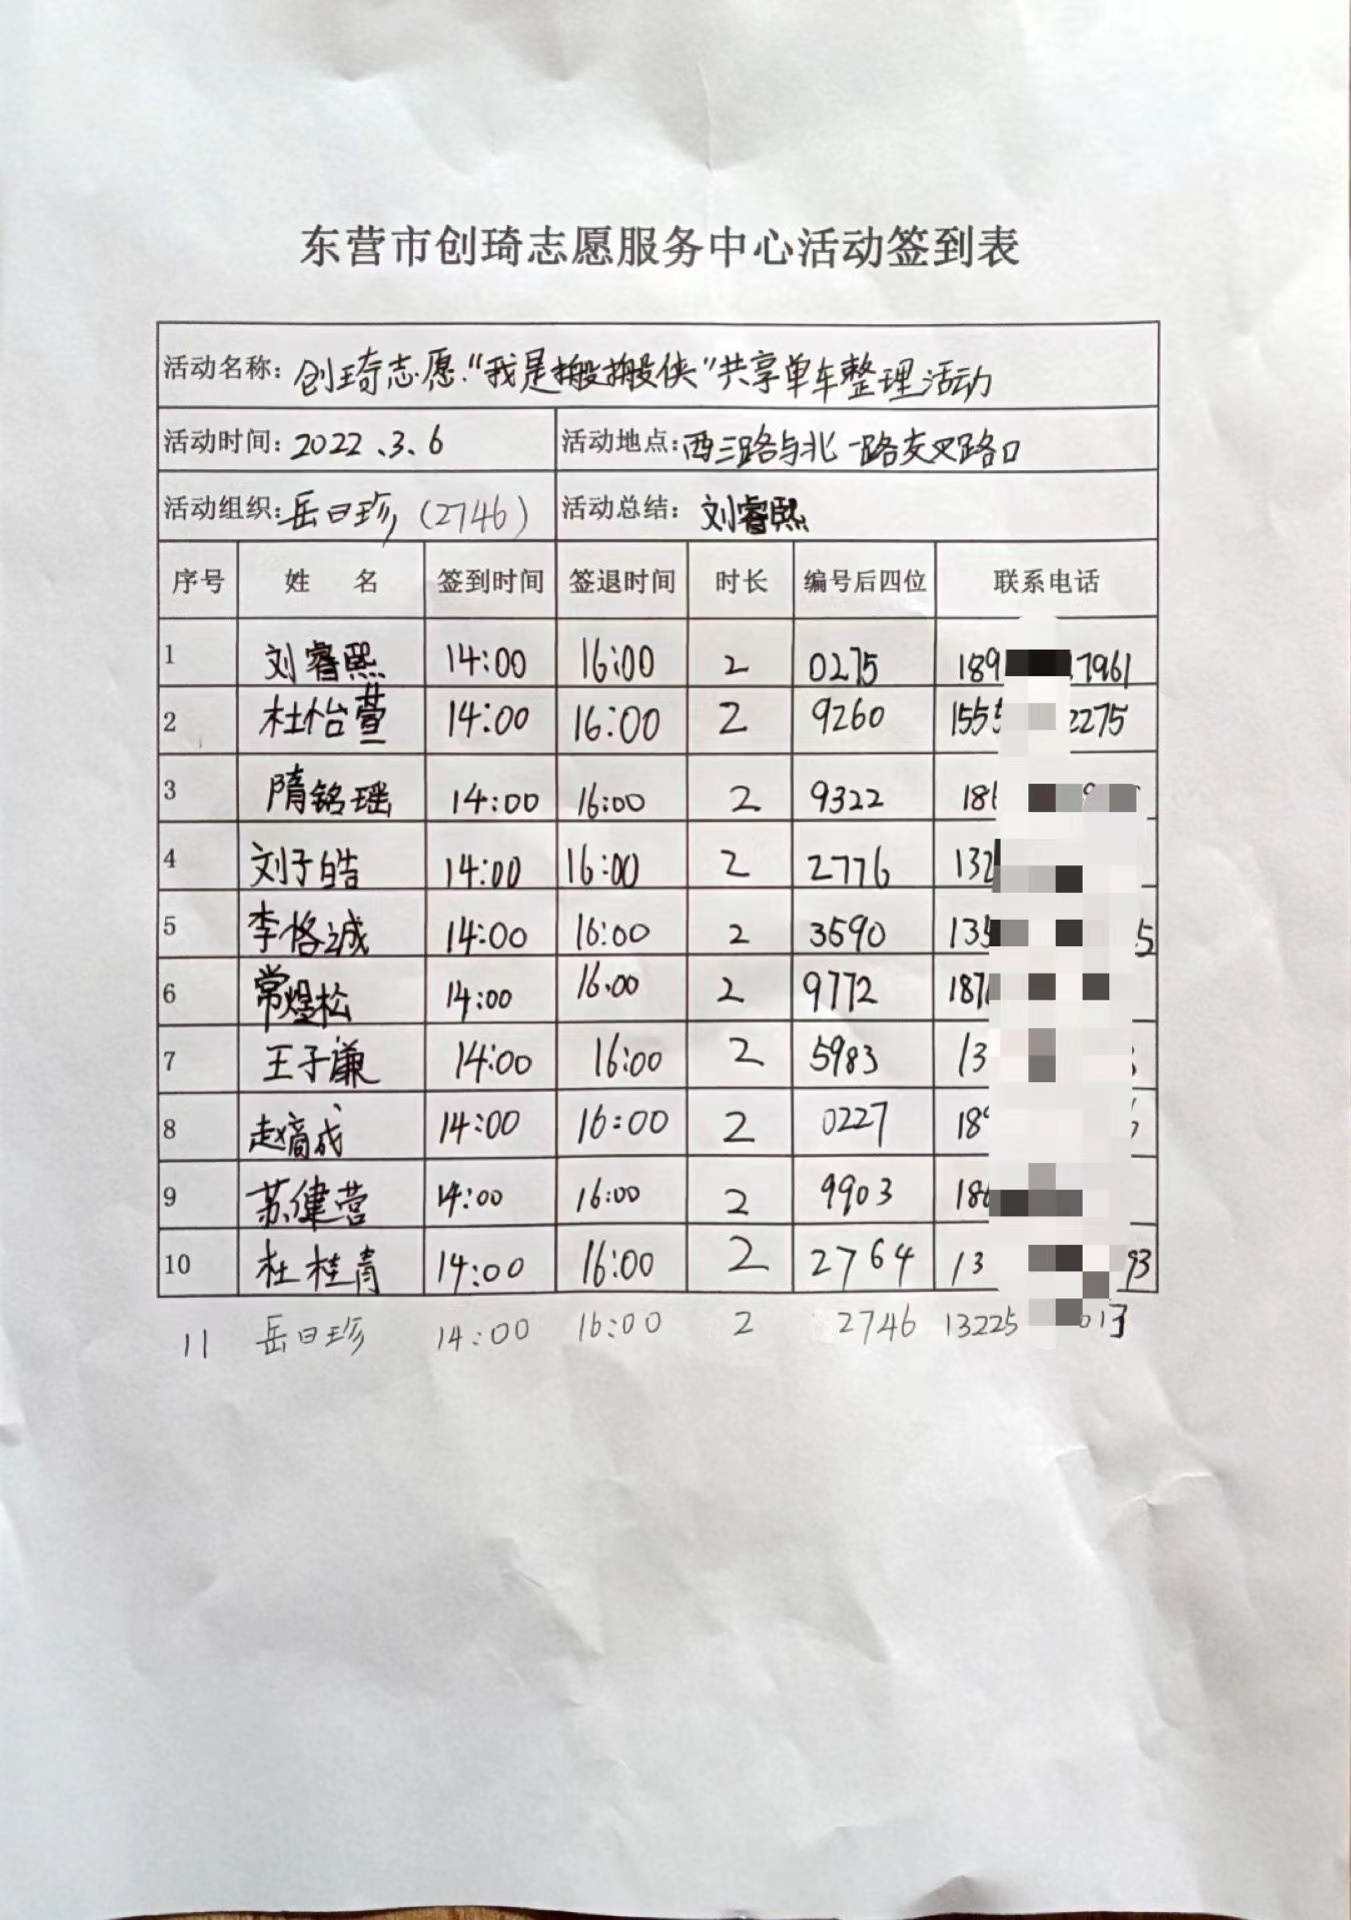 东营市创琦志愿服务中心活动签到表
活动名称: 创琦志愿“我是搬搬侠”共享单车整理活动
活动时间: 2022、3、6 活动地点: 西三路与北一路交叉路口
活动组织: 岳日珍 (2746) 活动总结: 刘睿熙
序号 姓 名 签到时间 签退时间 时长 编号后四位 联系电话
1 刘睿熙 14:00 16:00 2 0275 189 7961
2 杜怡萱 14:00 16:00 2 9260 1555 2275
3 隋铭瑶 14:00 16:00 2 9322 18
4 刘子皓 14:00 16:00 2 2776 132
5 李恪诚 14:00 16:00 2 3590 13 5
6 常煜松 14:00 16:00 2 9772 187
7 王子谦 14:00 16:00 2 5983 13
8 赵 成 14:00 16:00 2 0227 18
9 苏健营 14:00 16:00 2 9903 18
10 杜桂青 14:00 16:00 2 2764 13 93
11 岳日珍 14:00 16:00 2 2746 13225 013